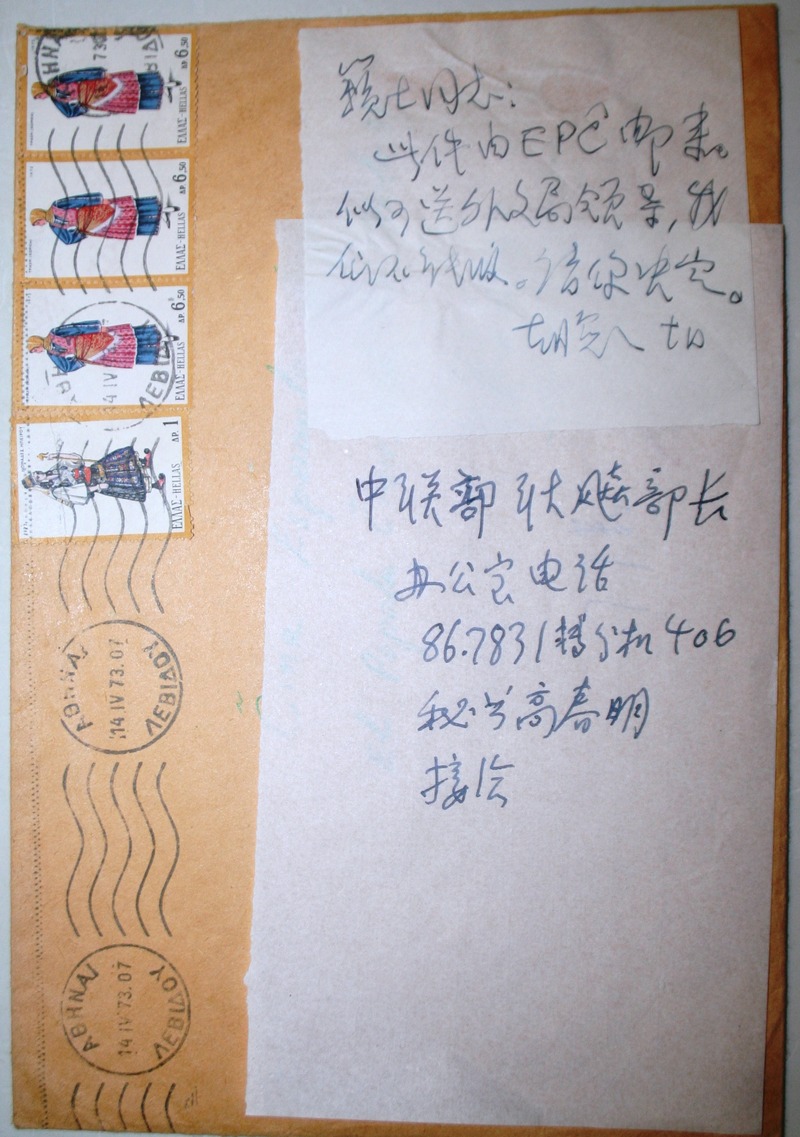 同志:
此件由EPC邮来。
似可送外文局领导,我
们不能收。请你决定。
中联部耿飚部长
办公室电话
86.7831转分机406
秘书高春明
接洽
ΔΡ. 6.50
ΕΛΛΑΣ-HELLAS
ΔΡ. 6.50
ΕΛΛΑΣ-HELLAS
ΔΡ. 6.50
ΕΛΛΑΣ-HELLAS
ΔΡ. 1
ΕΛΛΑΣ-HELLAS
ΑΘΗΝΑΙ
14 IV 73.07
ΛΕΒΙΔΟΥ
ΑΘΗΝΑΙ
14 IV 73.07
ΛΕΒΙΔΟΥ